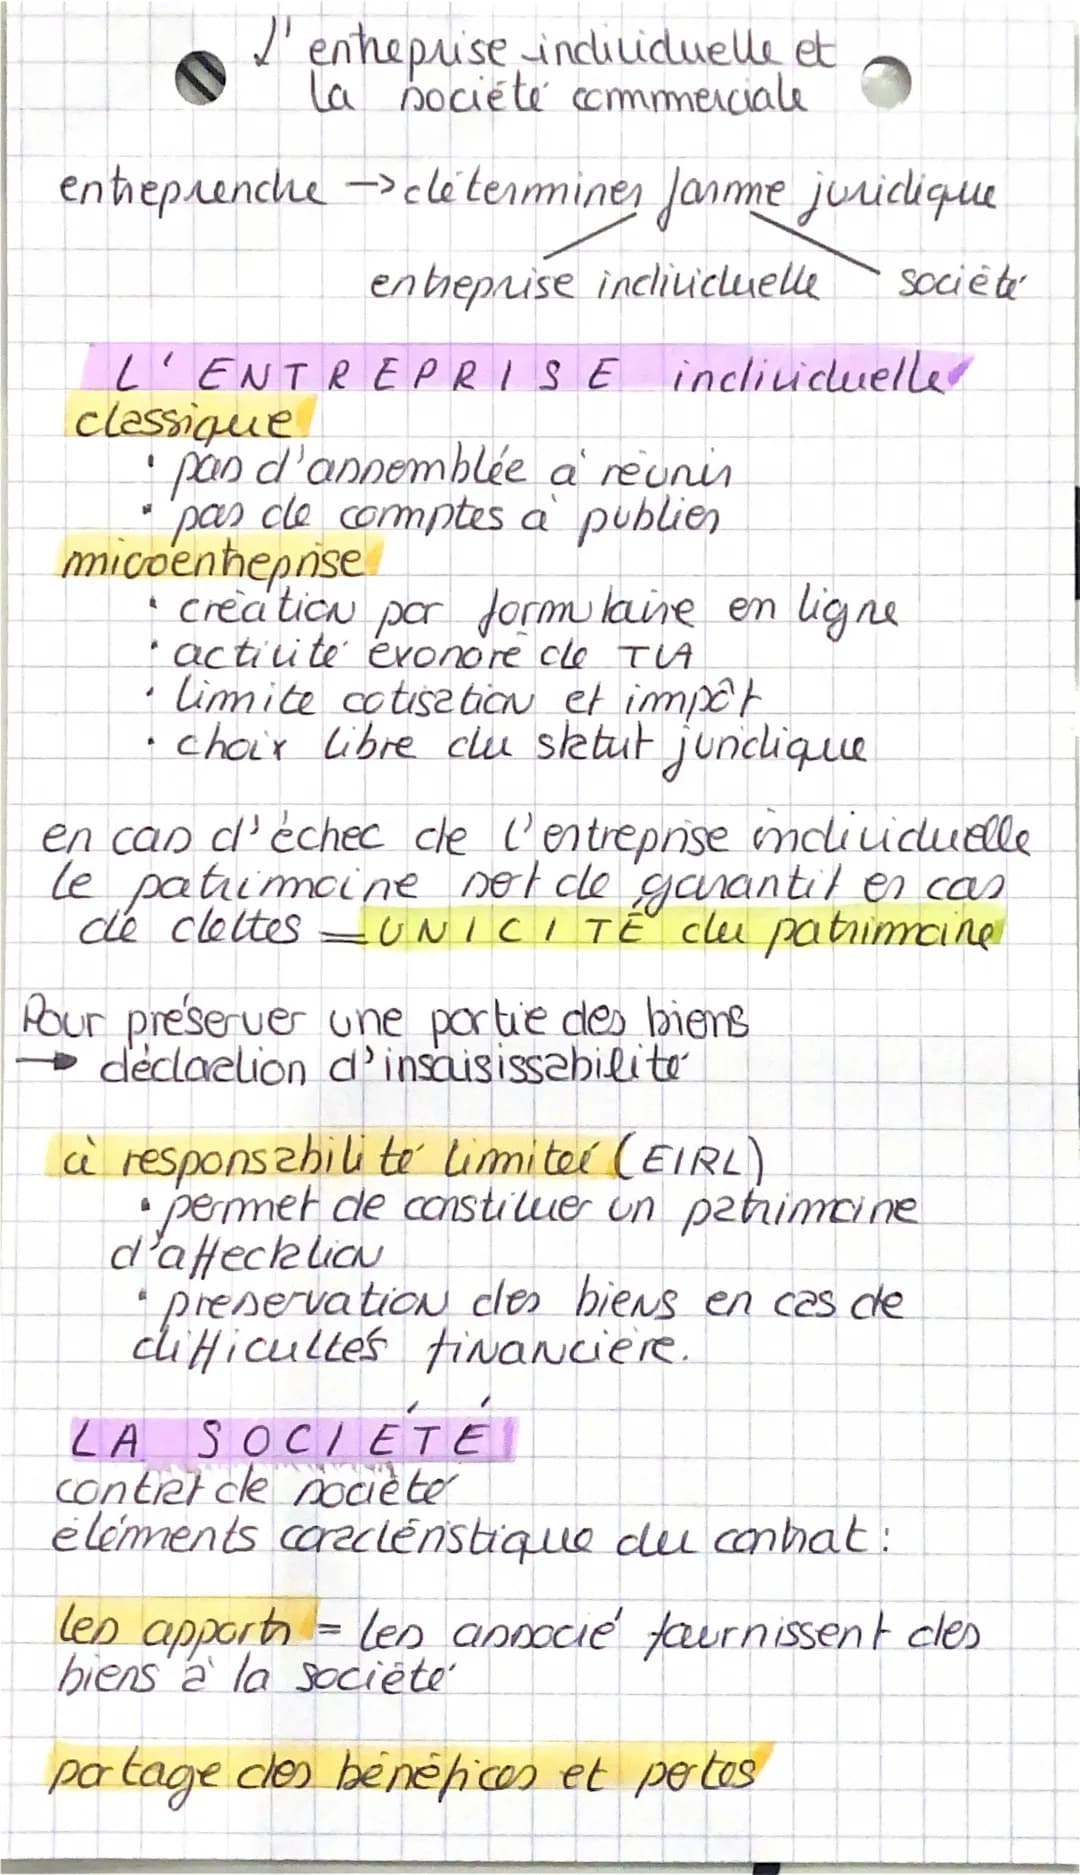 L'entreprise individuelle et
la société commerciale
entreprendre → déterminer forme juridique
entreprise individuelle société
L'ENTREPRISE individuelle
classique
• pas d'assemblée à réunir
• pas de comptes à publier
microentreprise
• création par formulaire en ligne
• activité exonoré de TVA
• limite cotisation et impôt
• choix libre du statut juridique
en cas d'échec de l'entreprise individuelle
le patrimoine sert de garantit en cas
de dettes = UNICITÉ du patrimoine
Pour préserver une partie des biens
→ déclaration d'insaisissabilité
à responsabilité limiteé (EIRL)
• permet de constituer un patrimoine
d'affectation
• préservation des biens en cas de
difficultés financière.
LA SOCIÉTÉ
contrat de société
éléments caractéristique du contrat :
les apports = les associé fournissent des
biens à la société
partage des bénéfices et pertes